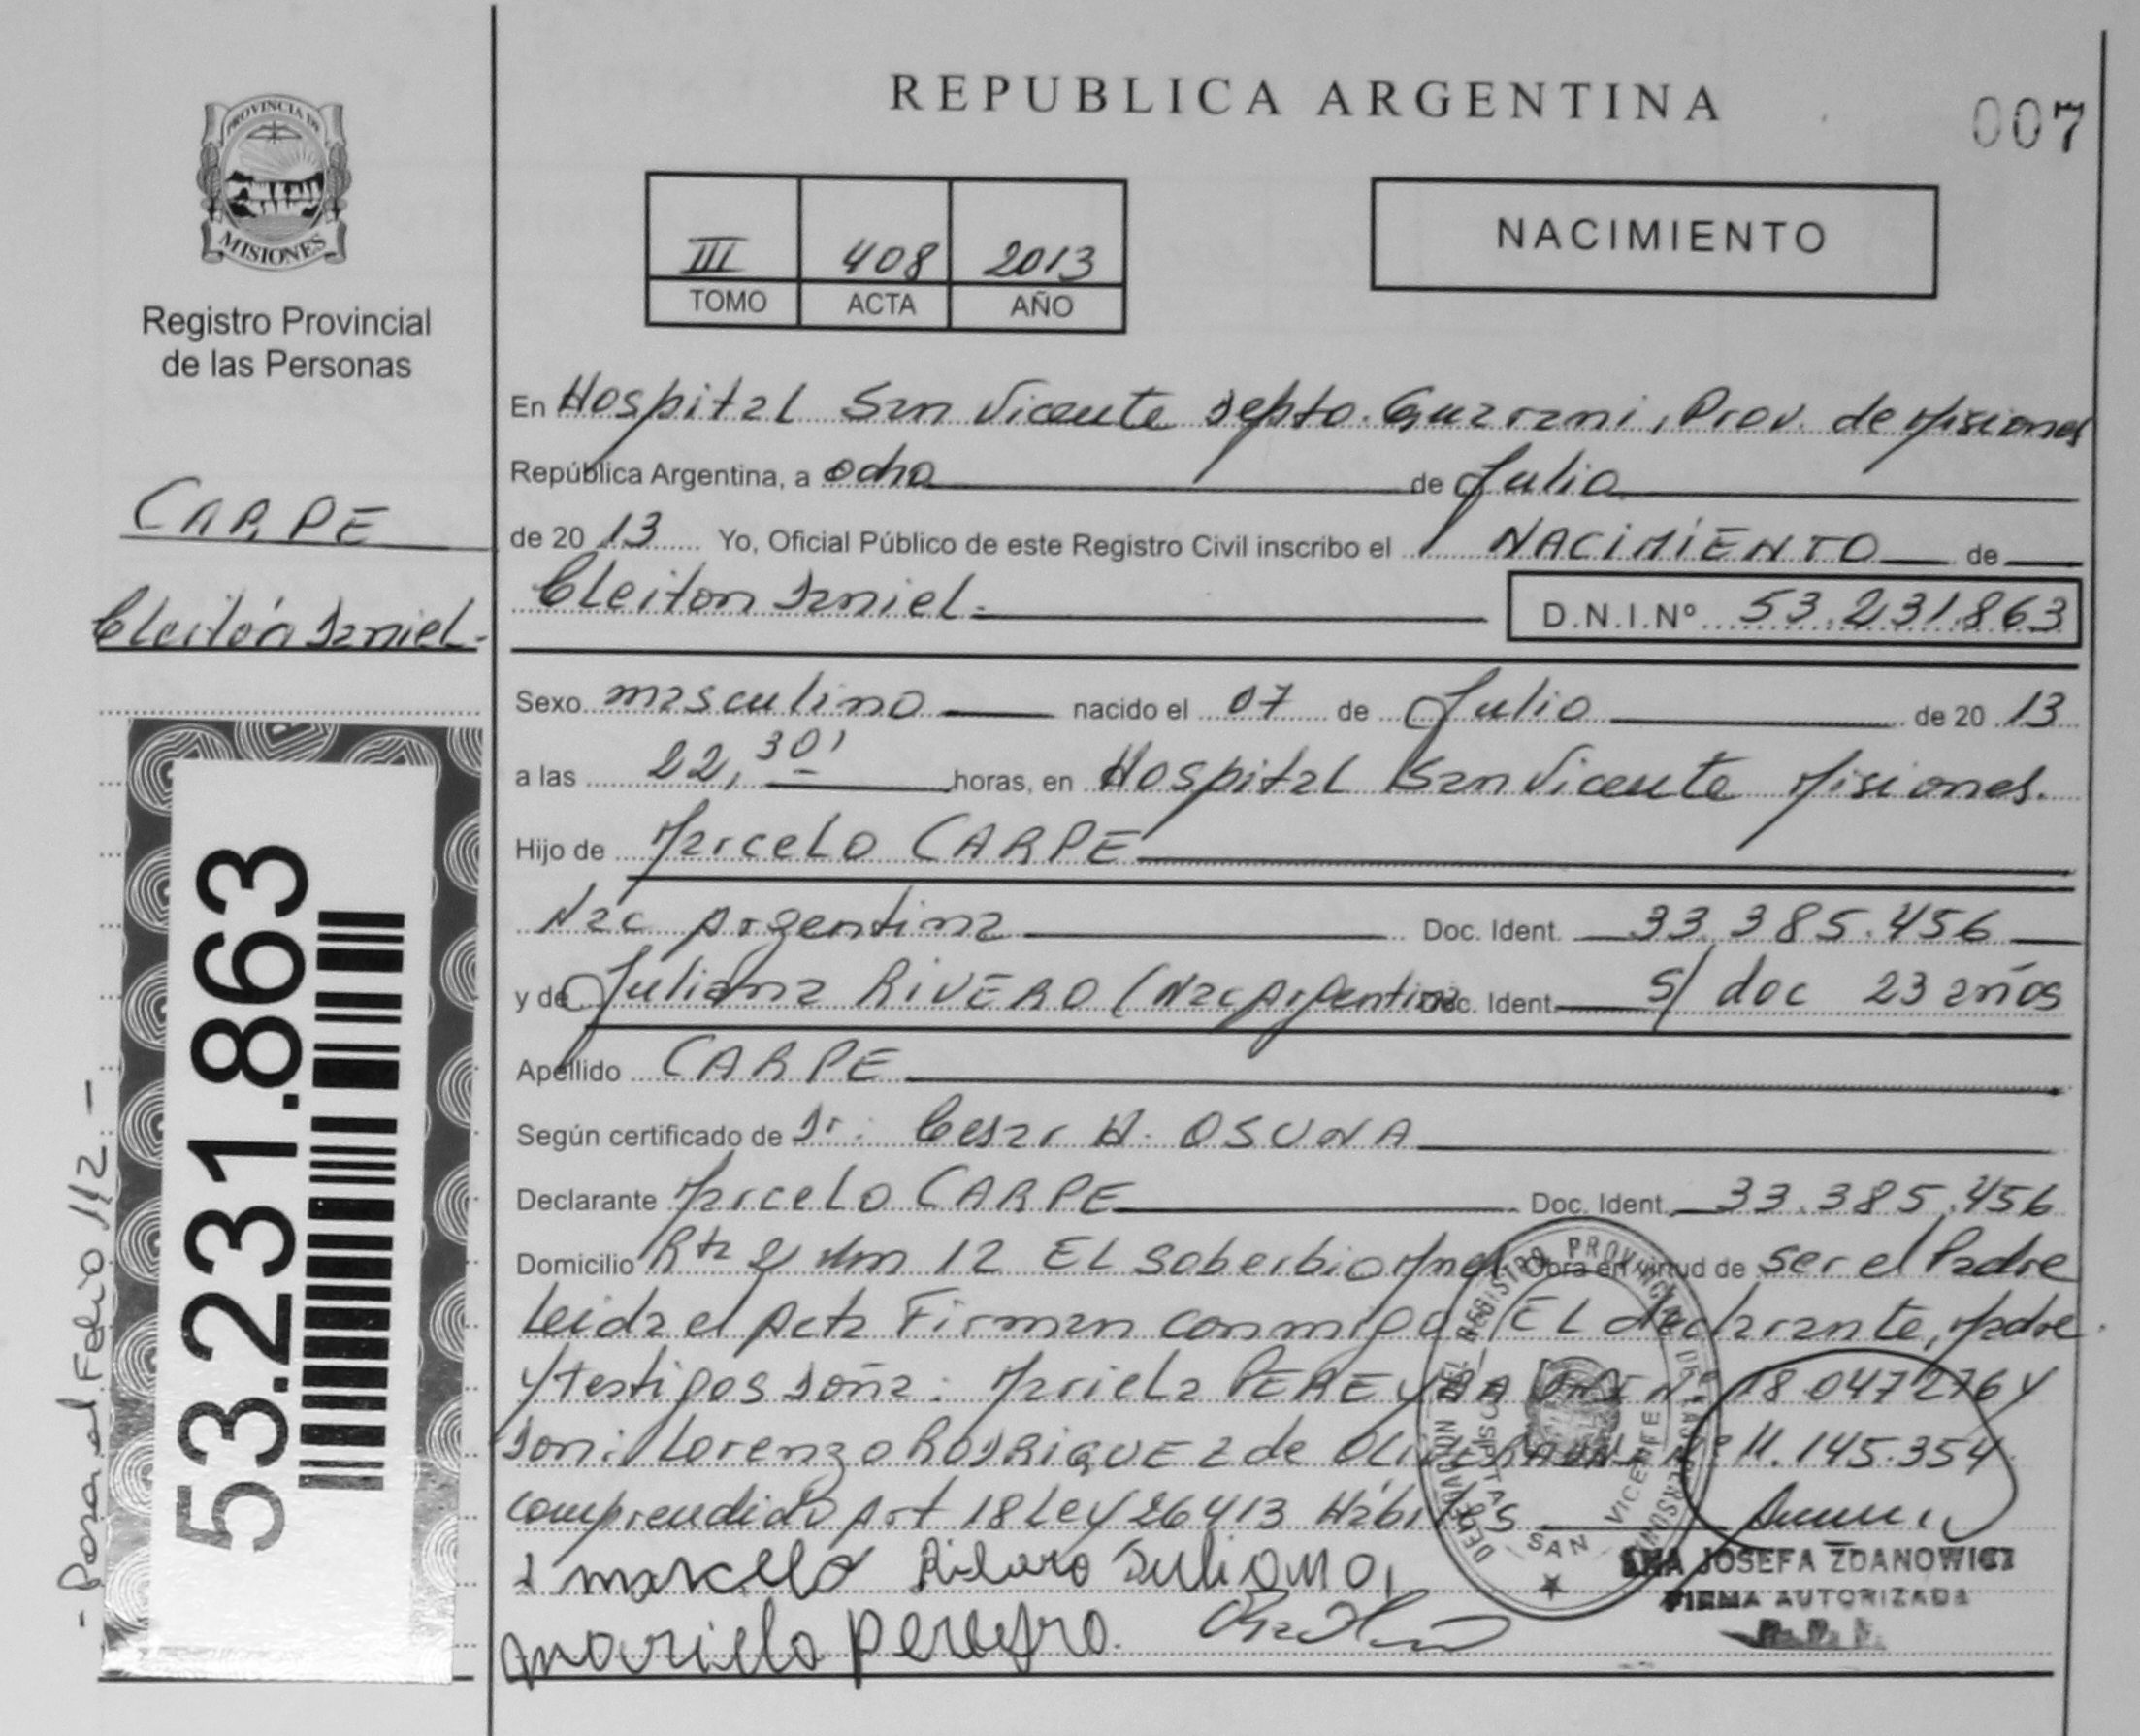 REPUBLICA ARGENTINA
007
PROVINCIA DE
MISIONES
Registro Provincial
de las Personas
III 408 2013
TOMO ACTA AÑO
NACIMIENTO
CARPE
Cleitón Daniel.-
53.231.863
- Pasa al Folio 112 -
En Hospital San Vicente Depto. Guarani, Prov. de Misiones
República Argentina, a ocho de Julio
de 20 13 Yo, Oficial Público de este Registro Civil inscribo el NACIMIENTO de
Cleiton Daniel.- D.N.I.Nº 53.231.863
Sexo masculino nacido el 07 de Julio de 20 13
a las 22,30' horas, en Hospital San Vicente Misiones.
Hijo de Marcelo CARPE
Nac Argentina Doc. Ident. 33.385.456
y de Juliana RIVERO (Nac Argentina Doc. Ident. S/ doc 23 años
Apellido CARPE
Según certificado de Dr. Cesar H. OSUNA
Declarante Marcelo CARPE Doc. Ident. 33.385.456
Domicilio Rta 2 Km 12 El Soberbio Mnes Obra en virtud de ser el Padre
Leida el Acta Firman conmigo EL declarante, Madre
y testigos Doña: Mariela PEREYRA DNI Nº 18.047276 y
Don: Lorenzo RODRIGUEZ de OLIVERA DNI Nº 11.145.354
comprendido Art 18 Ley 26413 Hábiles
marcelo Rivero Juliana
mariela pereyra.
DELEGACION DEL REGISTRO PROVINCIAL DE LAS PERSONAS
HOSPITAL
SAN VICENTE
ANA JOSEFA ZDANOWICZ
FIRMA AUTORIZADA